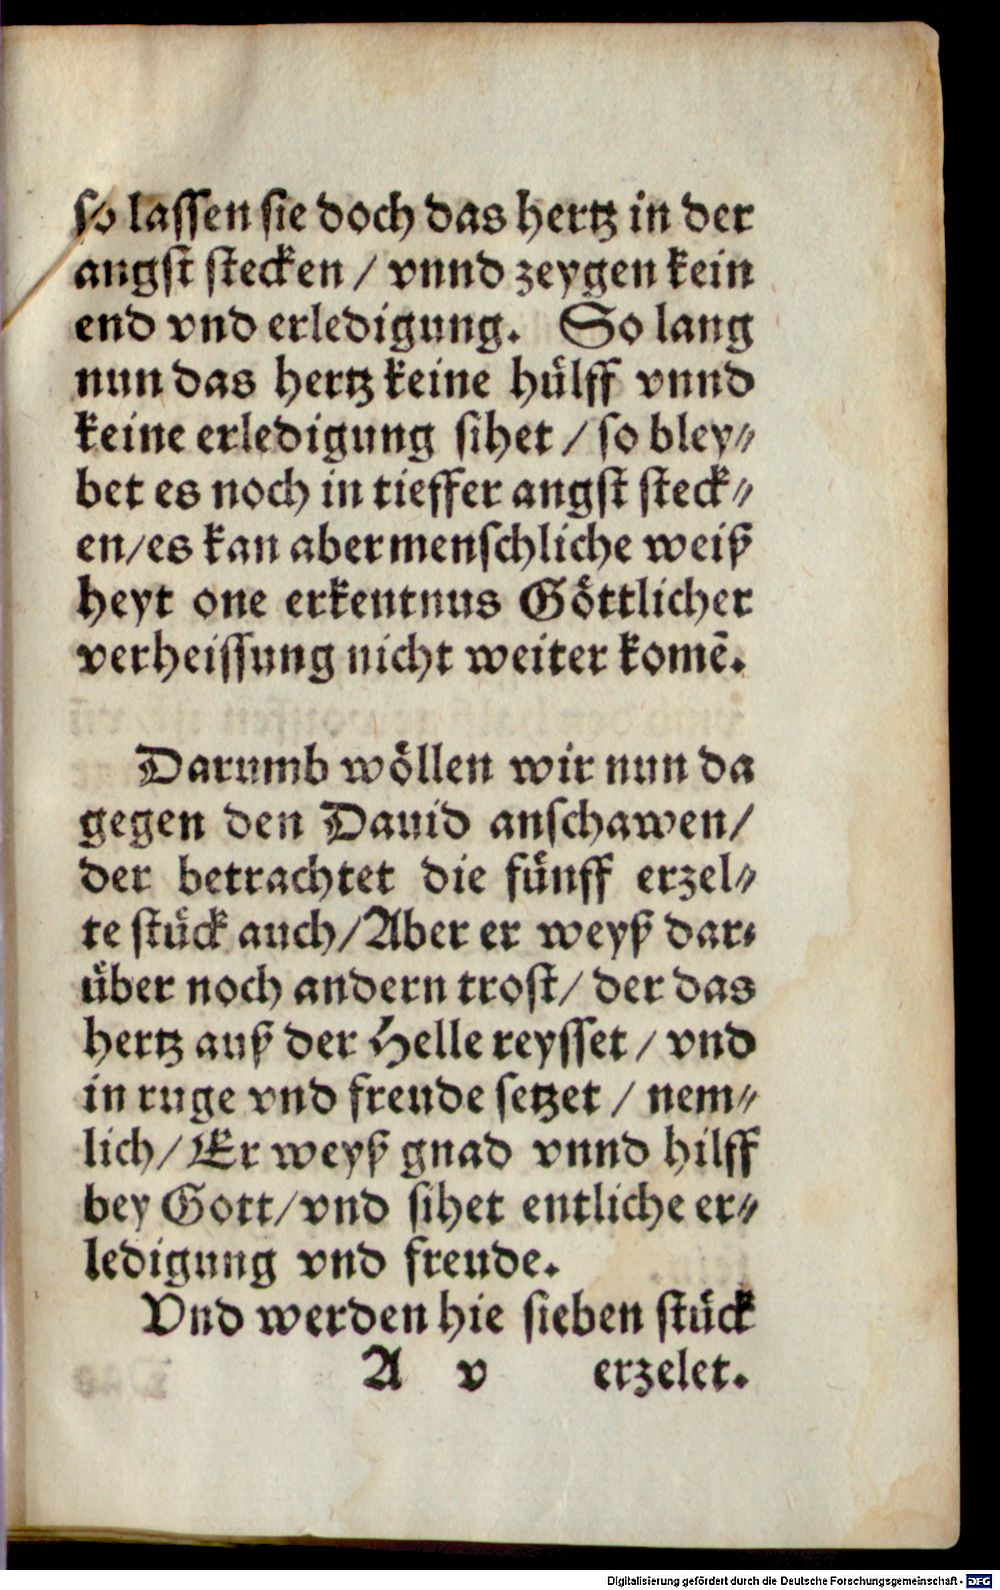 so lassen sie doch das hertz in der
angst stecken / vnnd zeygen kein
end vnd erledigung. So lang
nun das hertz keine hülff vnnd
keine erledigung sihet / so bley⸗
bet es noch in tieffer angst steck⸗
en/es kan aber menschliche weiß
heyt one erkentnus Göttlicher
verheissung nicht weiter komē.
Darumb wöllen wir nun da
gegen den Dauid anschawen/
der betrachtet die fünff erzel⸗
te stück auch/Aber er weyß dar⸗
über noch andern trost/ der das
hertz auß der Helle reysset / vnd
in ruge vnd freude setzet / nem⸗
lich/ Er weyß gnad vnnd hilff
bey Gott/vnd sihet entliche er⸗
ledigung vnd freude.
Vnd werden hie sieben stück
A v erzelet.
Digitalisierung gefördert durch die Deutsche Forschungsgemeinschaft - DFG